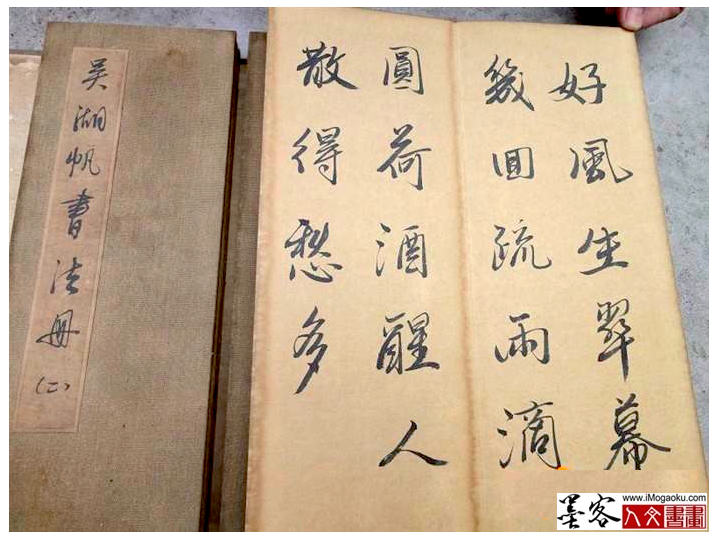 吴湖帆書法册(二)
好風生翠幕
幾回疏雨滴
圓荷酒醒人
散得愁多
墨客
www.iMogaoku.com
人文書畫